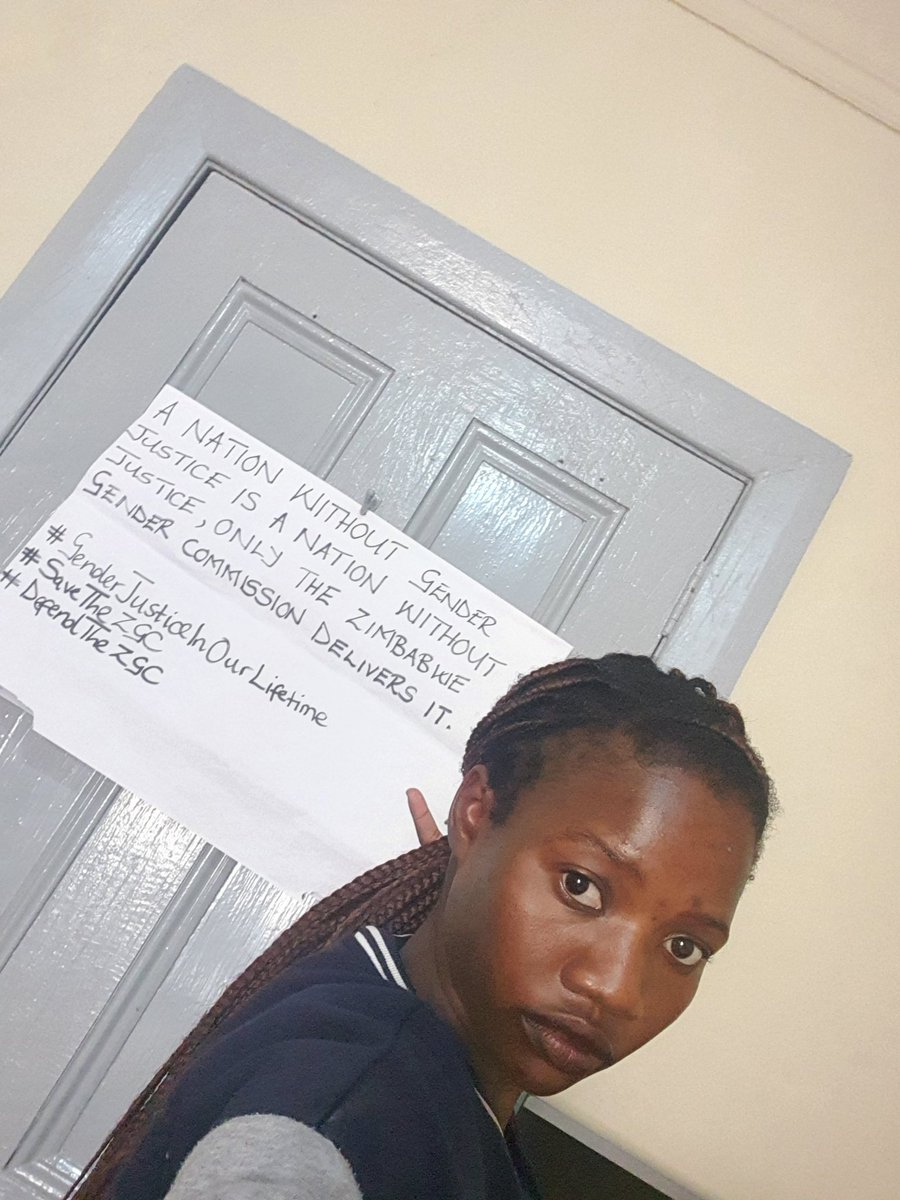 A NATION WITHOUT GENDER
JUSTICE IS A NATION WITHOUT
JUSTICE, ONLY THE ZIMBABWE
GENDER COMMISSION DELIVERS IT.
#GenderJusticeInOurLifetime
#SaveTheZGC
#DefendTheZGC